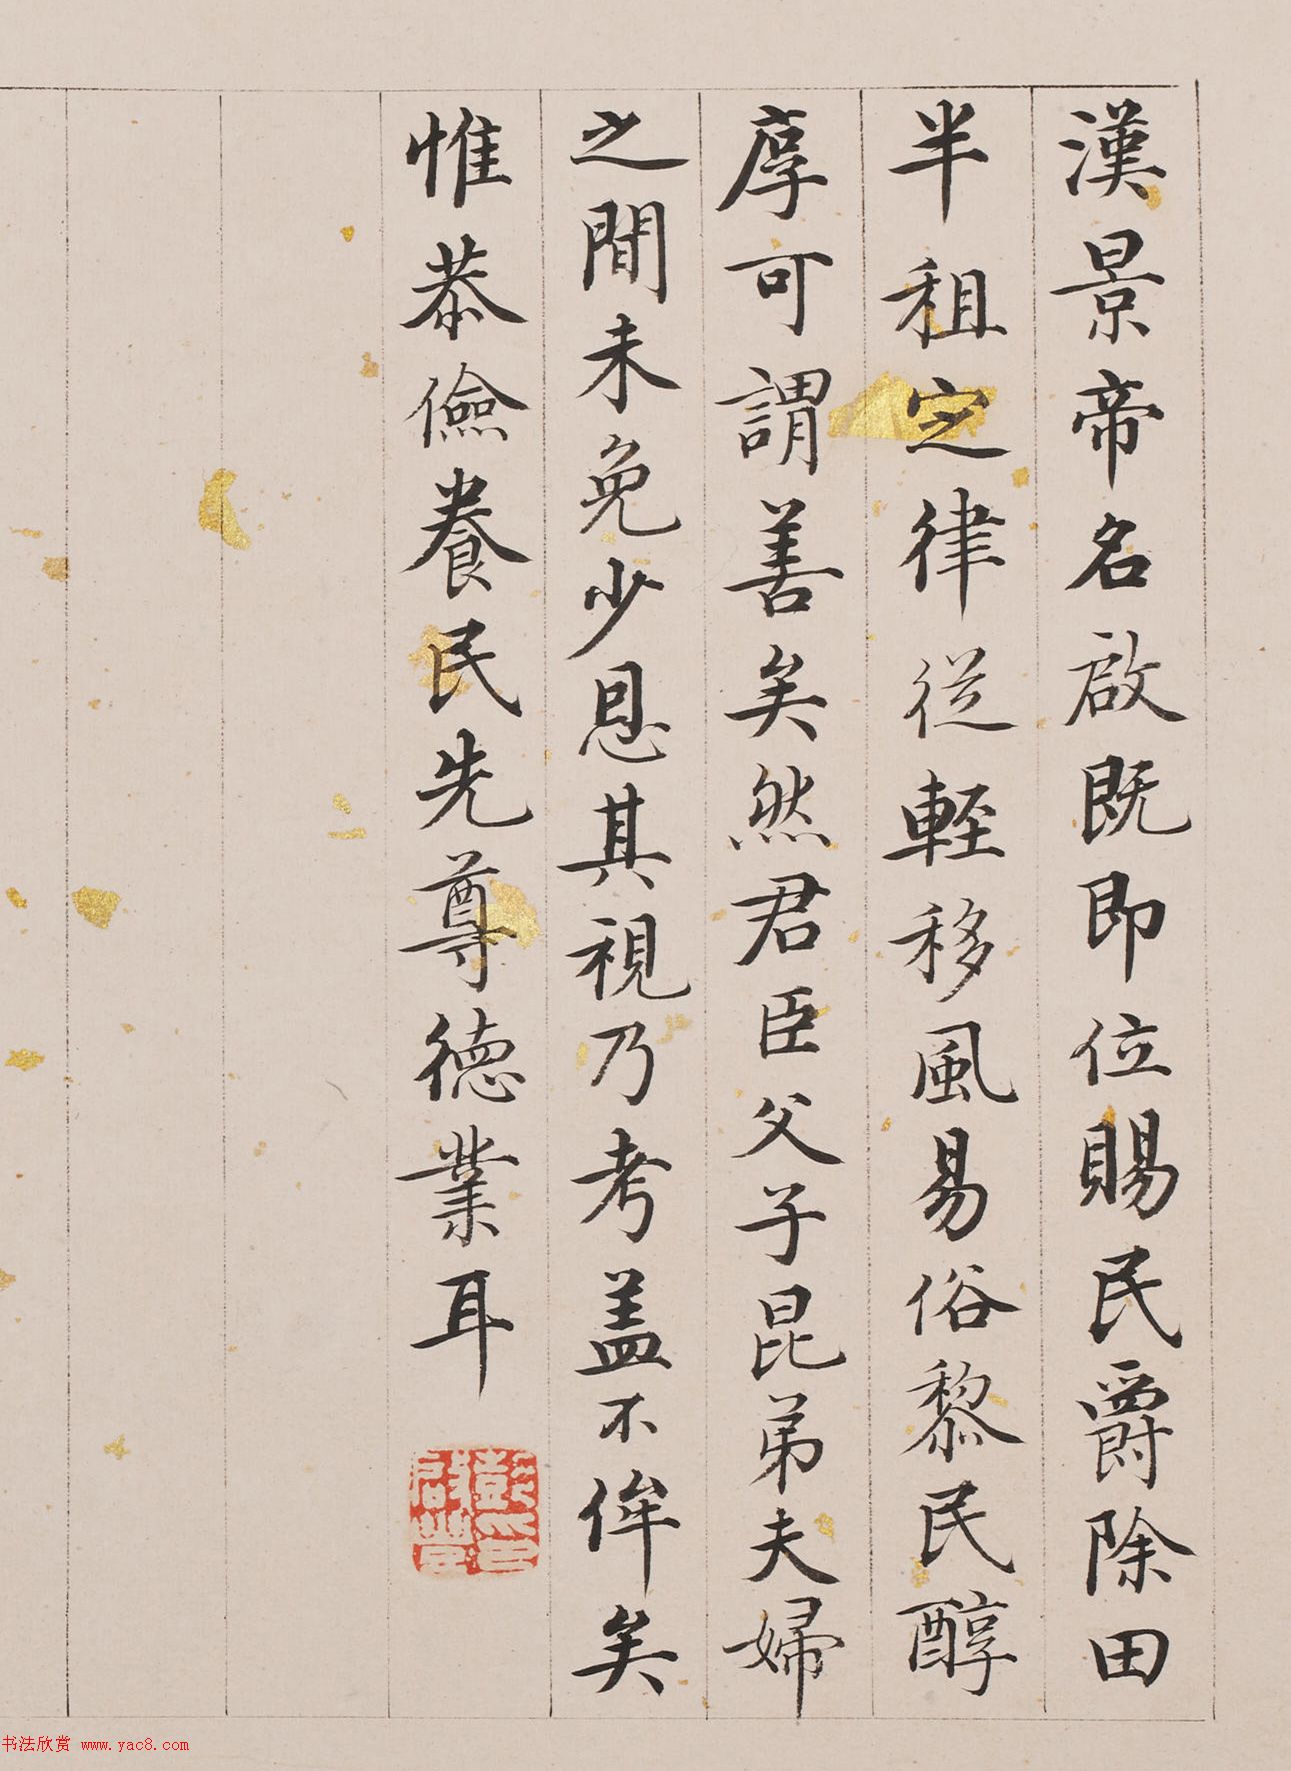 漢景帝名啟既即位賜民爵除田
半租定律從輕移風易俗黎民醇
厚可謂善矣然君臣父子昆弟夫婦
之間未免少恩其視乃考盖不侔矣
惟恭儉養民先尊德業耳
书法欣赏 www.yac8.com